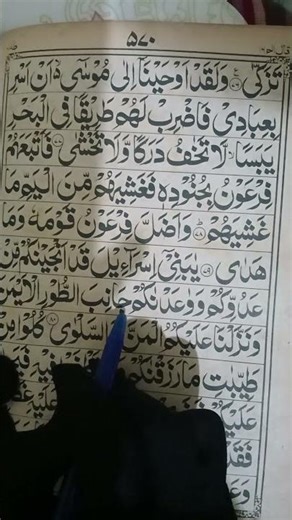 قال الم ١٦
٥٧٠
تَزَكّٰى ۝٧٦ وَلَقَدْ اَوْحَيْنَاۤ اِلٰى مُوْسٰٓى ۙ اَنْ اَسْرِ
بِعِبَادِىْ فَاضْرِبْ لَهُمْ طَرِيْقًا فِى الْبَحْرِ
يَبَسًا ۙ لَّا تَخٰفُ دَرَكًا وَّلَا تَخْشٰى ۝٧٧ فَاَتْبَعَهُمْ
فِرْعَوْنُ بِجُنُوْدِهٖ فَغَشِيَهُمْ مِّنَ الْيَمِّ مَا
غَشِيَهُمْ ۝٧٨ وَاَضَلَّ فِرْعَوْنُ قَوْمَهٗ وَمَا
هَدٰى ۝٧٩ يٰبَنِىْۤ اِسْرَآءِيْلَ قَدْ اَنْجَيْنٰكُمْ مِّنْ
عَدُوِّكُمْ وَوٰعَدْنٰكُمْ جَانِبَ الطُّوْرِ الْاَيْمَنَ
وَنَزَّلْنَا عَلَيْكُمُ الْمَنَّ وَالسَّلْوٰى ۝٨٠ كُلُوْا مِنْ
طَيِّبٰتِ مَا رَزَقْنٰكُمْ
عَلَيْكُمْ عَلَيْهِ
فَقَدْ